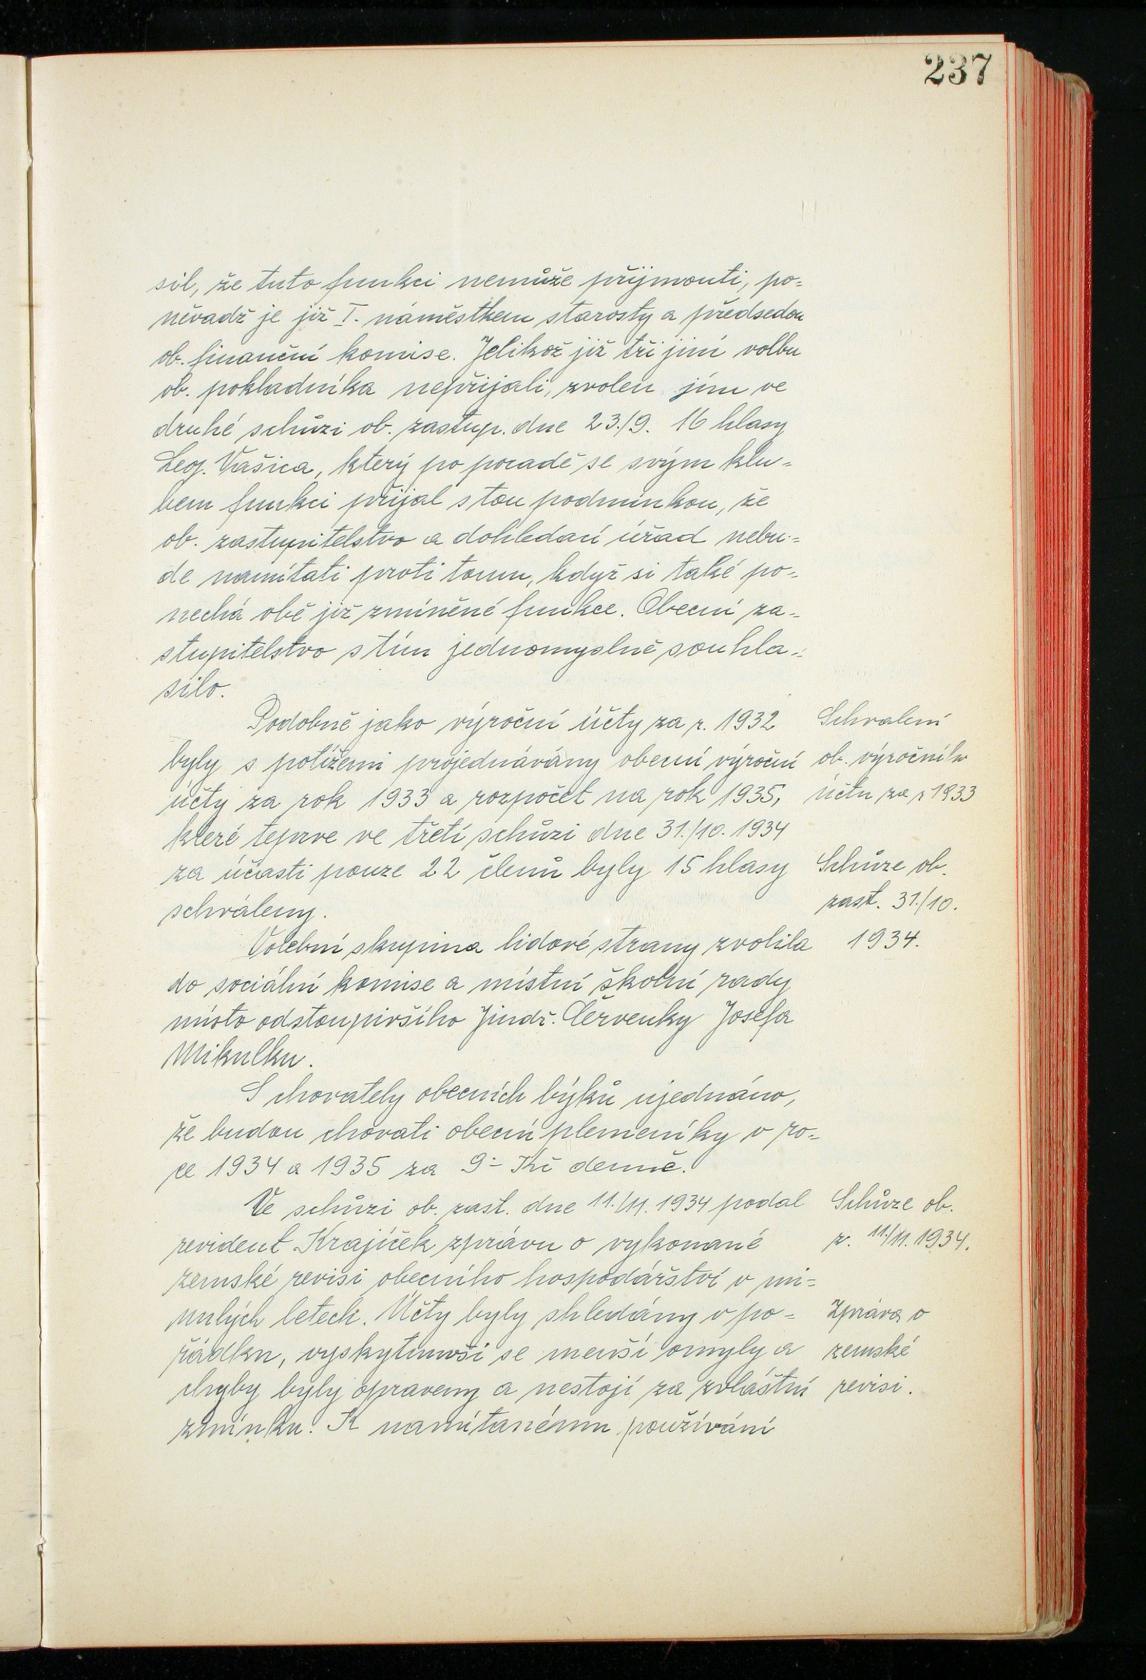 237
sil, že tuto funkci nemůže přijmouti, po=
něvadž je již I. náměstkem starosty a předsedou
ob. finanční komise. Jelikož již tři jiní volbu
ob. pokladníka nepřijali, zvolen jím ve
druhé schůzi ob. zastup. dne 23./9. 16 hlasy
Leop. Vašica, který po poradě se svým klu=
bem funkci přijal s tou podmínkou, že
ob. zastupitelstvo a dohledací úřad nebu=
de namítati proti tomu, když si také po=
nechá obě již zmíněné funkce. Obecní za=
stupitelstvo s tím jednomyslně souhla=
silo.
Podobně jako výroční účty za r. 1932
byly s potížemi projednávány obecní výroční
účty za rok 1933 a rozpočet na rok 1935,
které teprve ve třetí schůzi dne 31./10. 1934
za účasti pouze 22 členů byly 15 hlasy
schváleny.
Schvalení
ob. výročních
účtu za r 1933
Schůze ob.
zast. 31./10.
1934.
Volební skupina lidové strany zvolila
do sociální komise a místní školní rady
místo odstoupivšího Jindř. Červenky Josefa
Mikulku.
S chovately obecních býků ujednáno,
že budou chovati obecní plemeníky v ro=
ce 1934 a 1935 za 9·- Kč denně.
Ve schůzi ob. zast. dne 11./11. 1934 podal
revident Krajíček zprávu o vykonané
zemské revisi obecního hospodářství v mi=
nulých letech. Účty byly shledány v po=
řádku, vyskytnuvší se menší omyly a
chyby byly opraveny a nestojí za zvláštní
zmínku. K namítanému používání
Schůze ob.
z. 11./11. 1934.
Zpráva o
zemské
revisi.